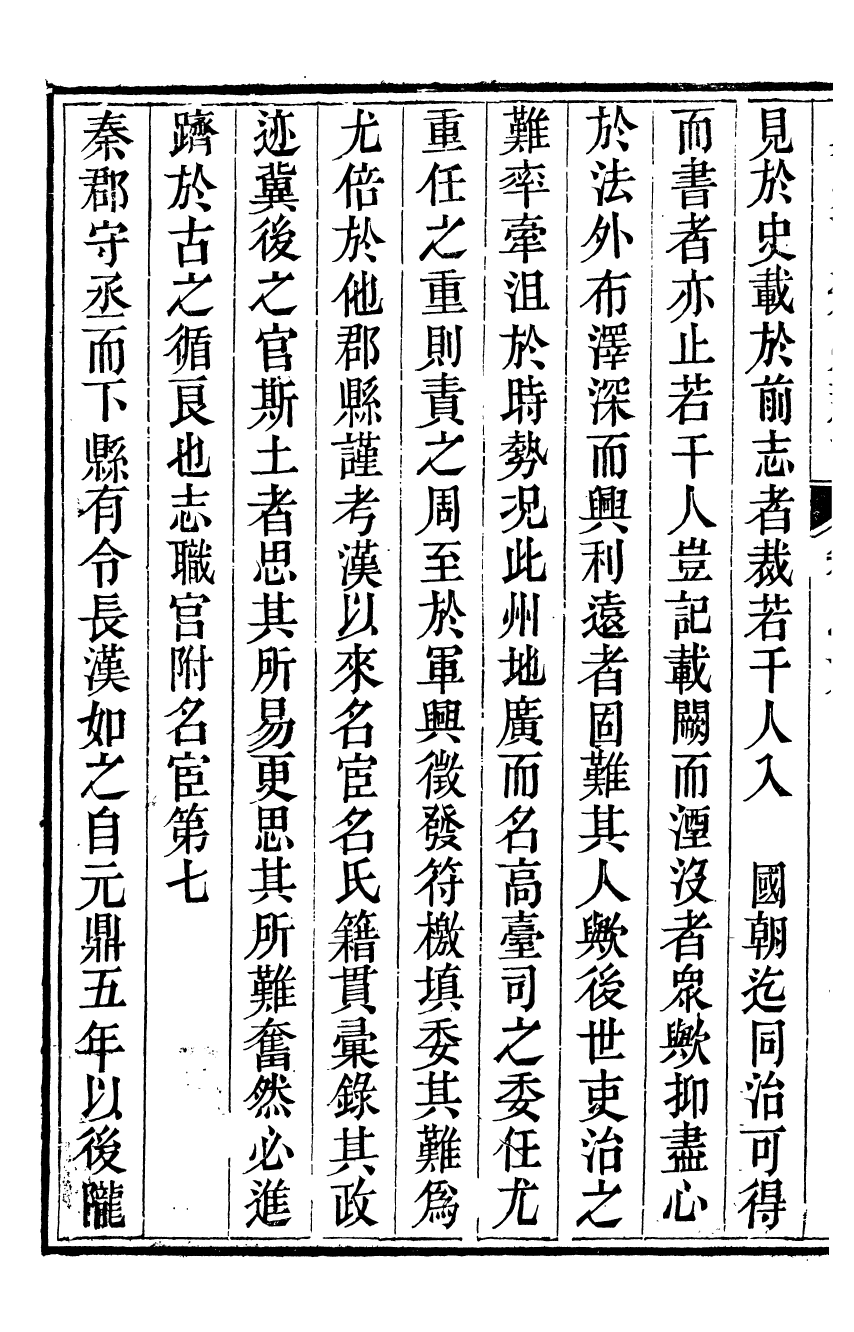 見於史載於前志者裁若干人入　國朝迄同治可得
而書者亦止若干人豈記載闕而湮沒者眾歟抑盡心
於法外布澤深而興利遠者固難其人歟後世吏治之
難率牽沮於時勢况此州地廣而名高臺司之委任尤
重任之重則責之周至於軍興徵發符檄填委其難爲
尤倍於他郡縣謹考漢以來名宦名氏籍貫彙錄其政
迹冀後之官斯土者思其所易更思其所難奮然必進
躋於古之循良也志職官附名宦第七
秦郡守丞而下縣有令長漢如之自元鼎五年以後隴